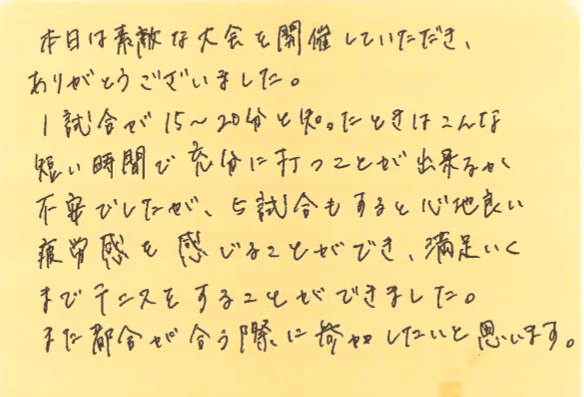 本日は素敵な大会を開催していただき、
ありがとうございました。
1試合が15〜20分と知ったときはこんな
短い時間で充分に打つことが出来るか
不安でしたが、5試合もすると心地良い
疲労感を感じることができ、満足いく
までテニスをすることができました。
また都合が合う際に参加したいと思います。